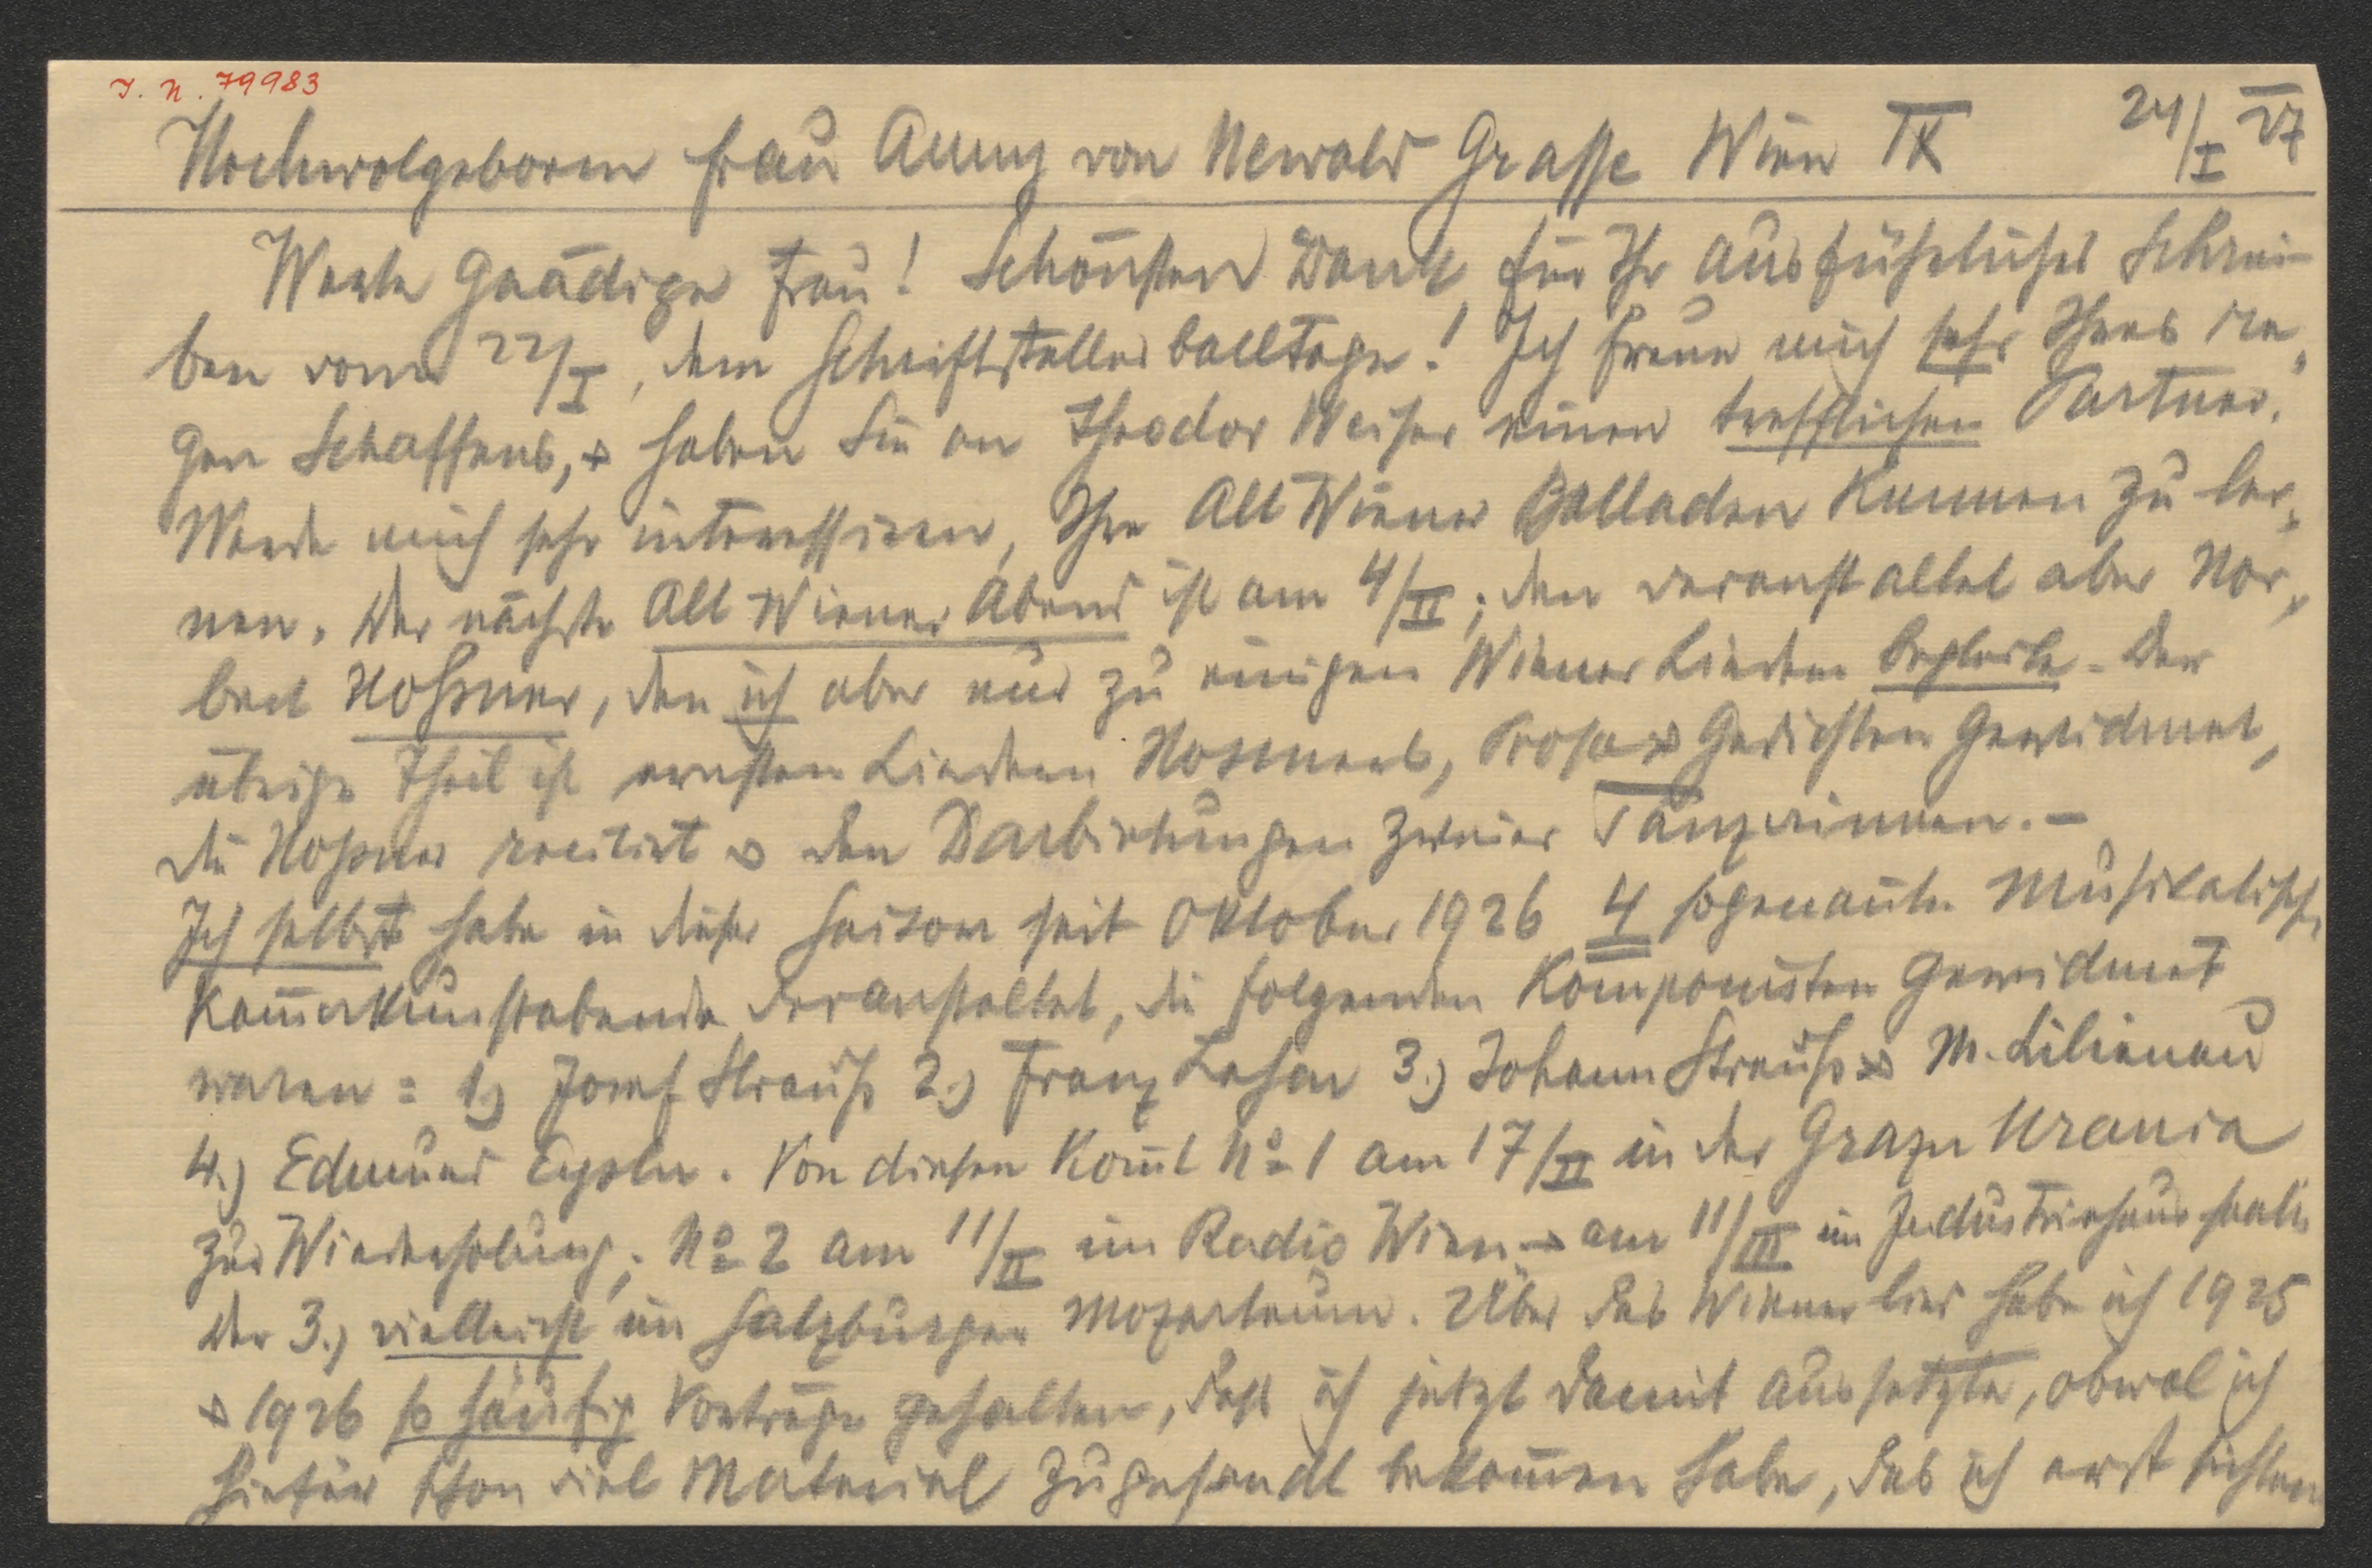 I. N. 79983
Hochwolgeboren Frau Anny von Newald Grasse Wien IX 24/I 27
Werte Gnädige Frau! Schönsten Dank für Ihr ausführliches Schrei-
ben vom 22/I, dem Schriftstellerballtage! Ich freue mich sehr Ihres re-
gen Schaffens, & haben Sie an Theodor Weiser einen trefflichen Partner.
Werde mich sehr interessiren, Ihre Alt Wiener Balladen kennen zu ler-
nen. Der nächste Alt-Wiener Abend ist am 4/II; den veranstaltet aber Nor-
bert Hossner, den ich aber nur zu einigen Wiener Liedern begleite. Der
übrige Theil ist ernsten Liedern Hossners, Prosa & Gedichten gewidmet,
die Hossner recitirt & den Darbietungen zweier Tänzerinnen. –
Ich selbst habe in dieser Saison seit Oktober 1926 4 sogenannte Musikalische
Kam̄erkunstabende veranstaltet, die folgenden Komponisten gewidmet
waren: 1.) Josef Strauß 2.) Franz Lehar 3.) Johann Strauß & M. Lilienau
4.) Edmund Eysler. Von diesen kom̄t No 1 am 17/II in der Grazer Urania
zur Wiederholung; No 2 am 11/II im Radio Wien & am 11/III im Industriehaussaale
der 3.) vielleicht im Salzburger Mozarteum. Über das Wienerlied habe ich 1925
& 1926 so häufig Vorträge gehalten, daß ich jetzt damit aussetzte, obwol ich
hiefür schon viel Material zugesandt bekom̄en habe, das ich erst sichten